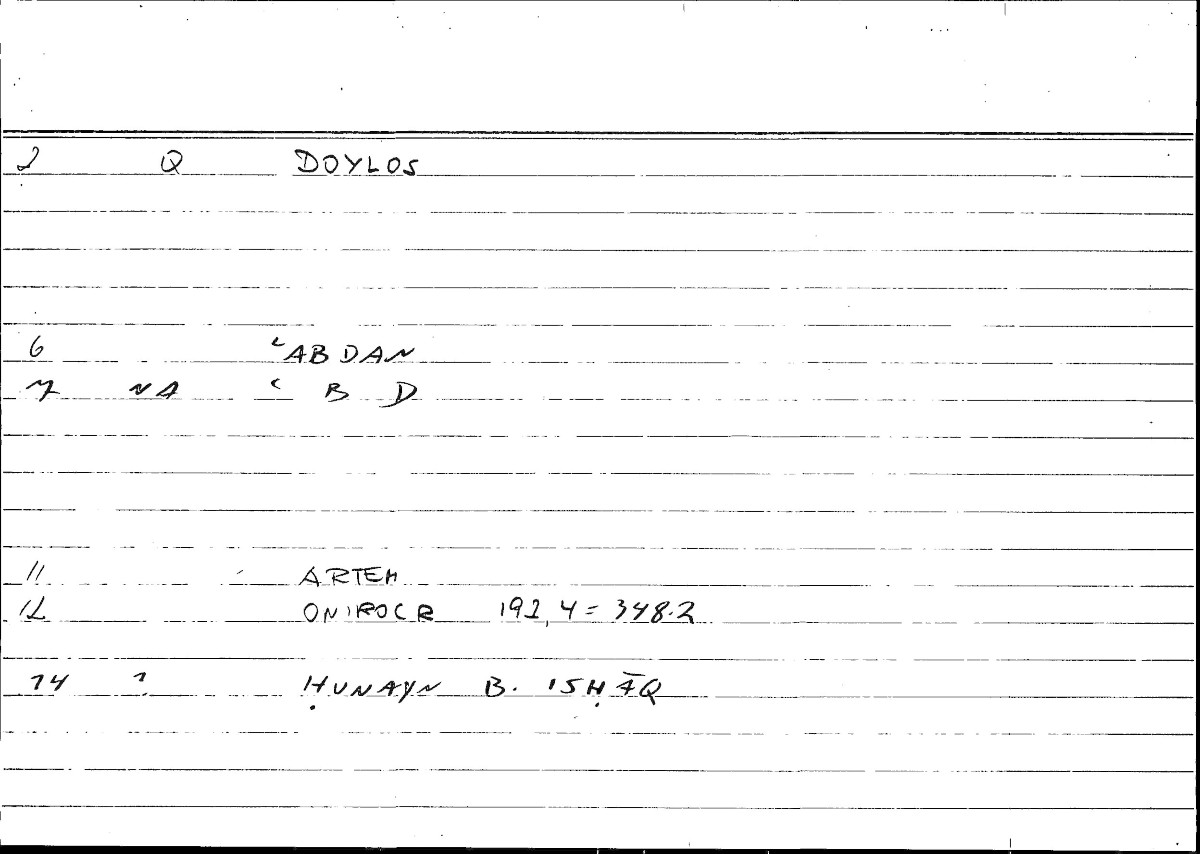 2 Q DOYLOS
6 ʿABDAN
7 NA ʿ B D
11 ARTEM
12 ONIROCR 192,4 = 348.2
14 1. ḤUNAYN B. ISḤĀQ